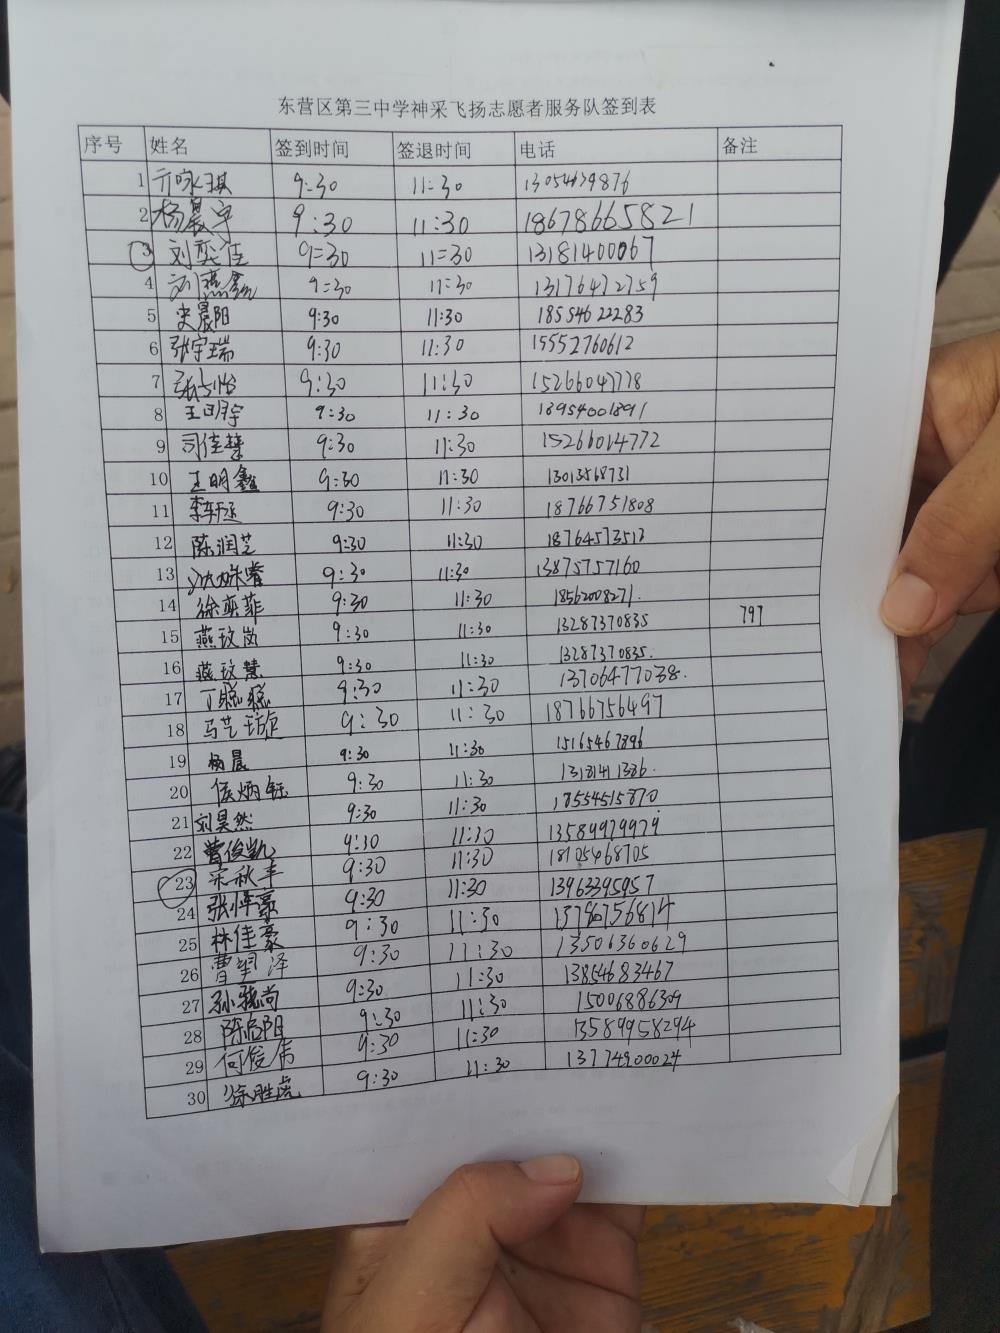 东营区第三中学神采飞扬志愿者服务队签到表
序号 姓名 签到时间 签退时间 电话 备注
1 亓咏琪 9:30 11:30 13054639876
2 杨晨宇 9:30 11:30 18678665821
3 刘奕佳 9:30 11:30 13181400067
4 刘燕鑫 9:30 11:30 13176472759
5 史晨阳 9:30 11:30 18554622283
6 张宇瑞 9:30 11:30 15552760612
7 9:30 11:30 15266047778
8 王明宇 9:30 11:30 18954001891
9 司佳慧 9:30 11:30 15266014772
10 王明鑫 9:30 11:30 13013568731
11 9:30 11:30 18766751808
12 陈润芝 9:30 11:30 18764573512
13 9:30 11:30 13875757160
14 徐奕菲 9:30 11:30 18562008271.
15 燕玟岚 9:30 11:30 13287370835 797
16 燕玟慧 9:30 11:30 13287370835.
17 丁聪聪 9:30 11:30 13706477038.
18 马艺 9:30 11:30 18766756497
19 杨晨 9:30 11:30 15165467896
20 侯炳钰 9:30 11:30 13181411386.
21 刘昊然 9:30 11:30 18554515870
22 曹俊凯 9:30 11:30 13589979979
23 宋秋丰 9:30 11:30 18105468705
24 张恽豪 9:30 11:30 13963395957
25 林佳豪 9:30 11:30 13780756814
26 曹玥泽 9:30 11:30 13506360629
27 孙骁尚 9:30 11:30 13854683467
28 陈冠阳 9:30 11:30 15006886309
29 何俊伟 9:30 11:30 13589958294
30 徐胜虎 9:30 11:30 13774900024